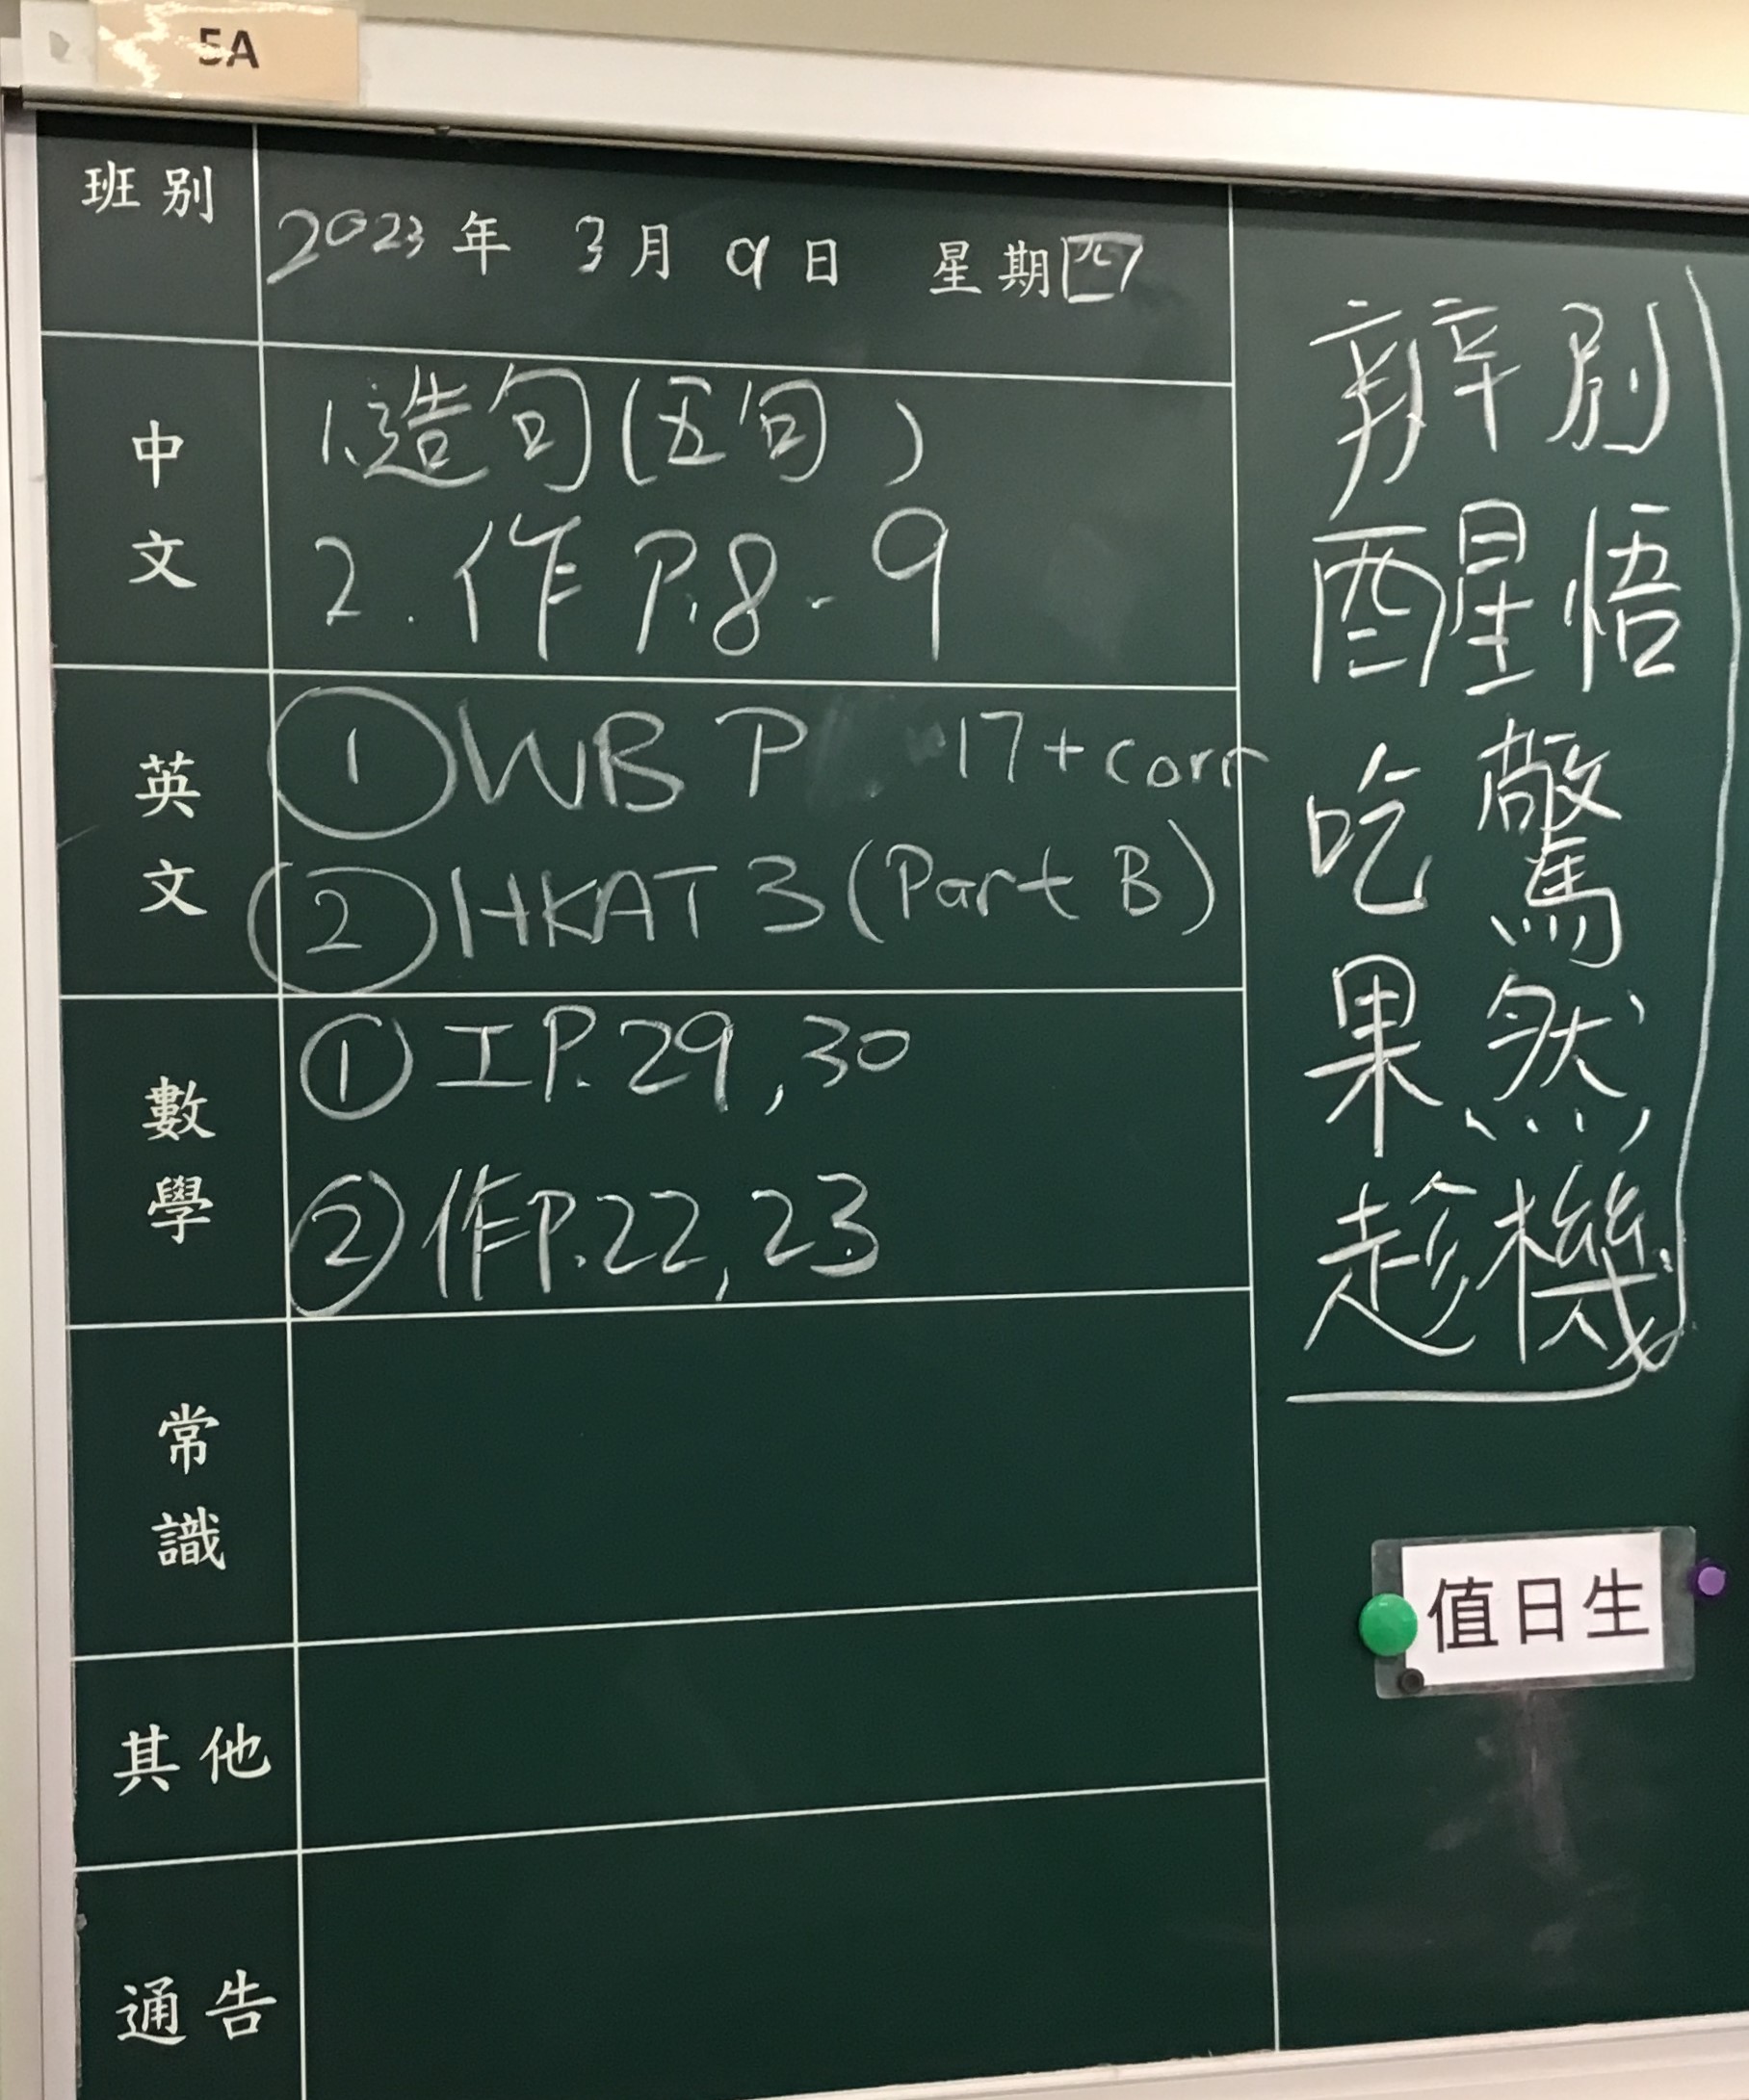 5A
班別
2023年 3月 9日 星期四
中文
1.造句(五句)
2.作 P.8-9
英文
① WB P 17+corr
② HKAT 3 (Part B)
數學
① 工P.29,30
② 作P.22,23
常識
其他
通告
辨別
醒悟
吃驚
果然
趁機
值日生